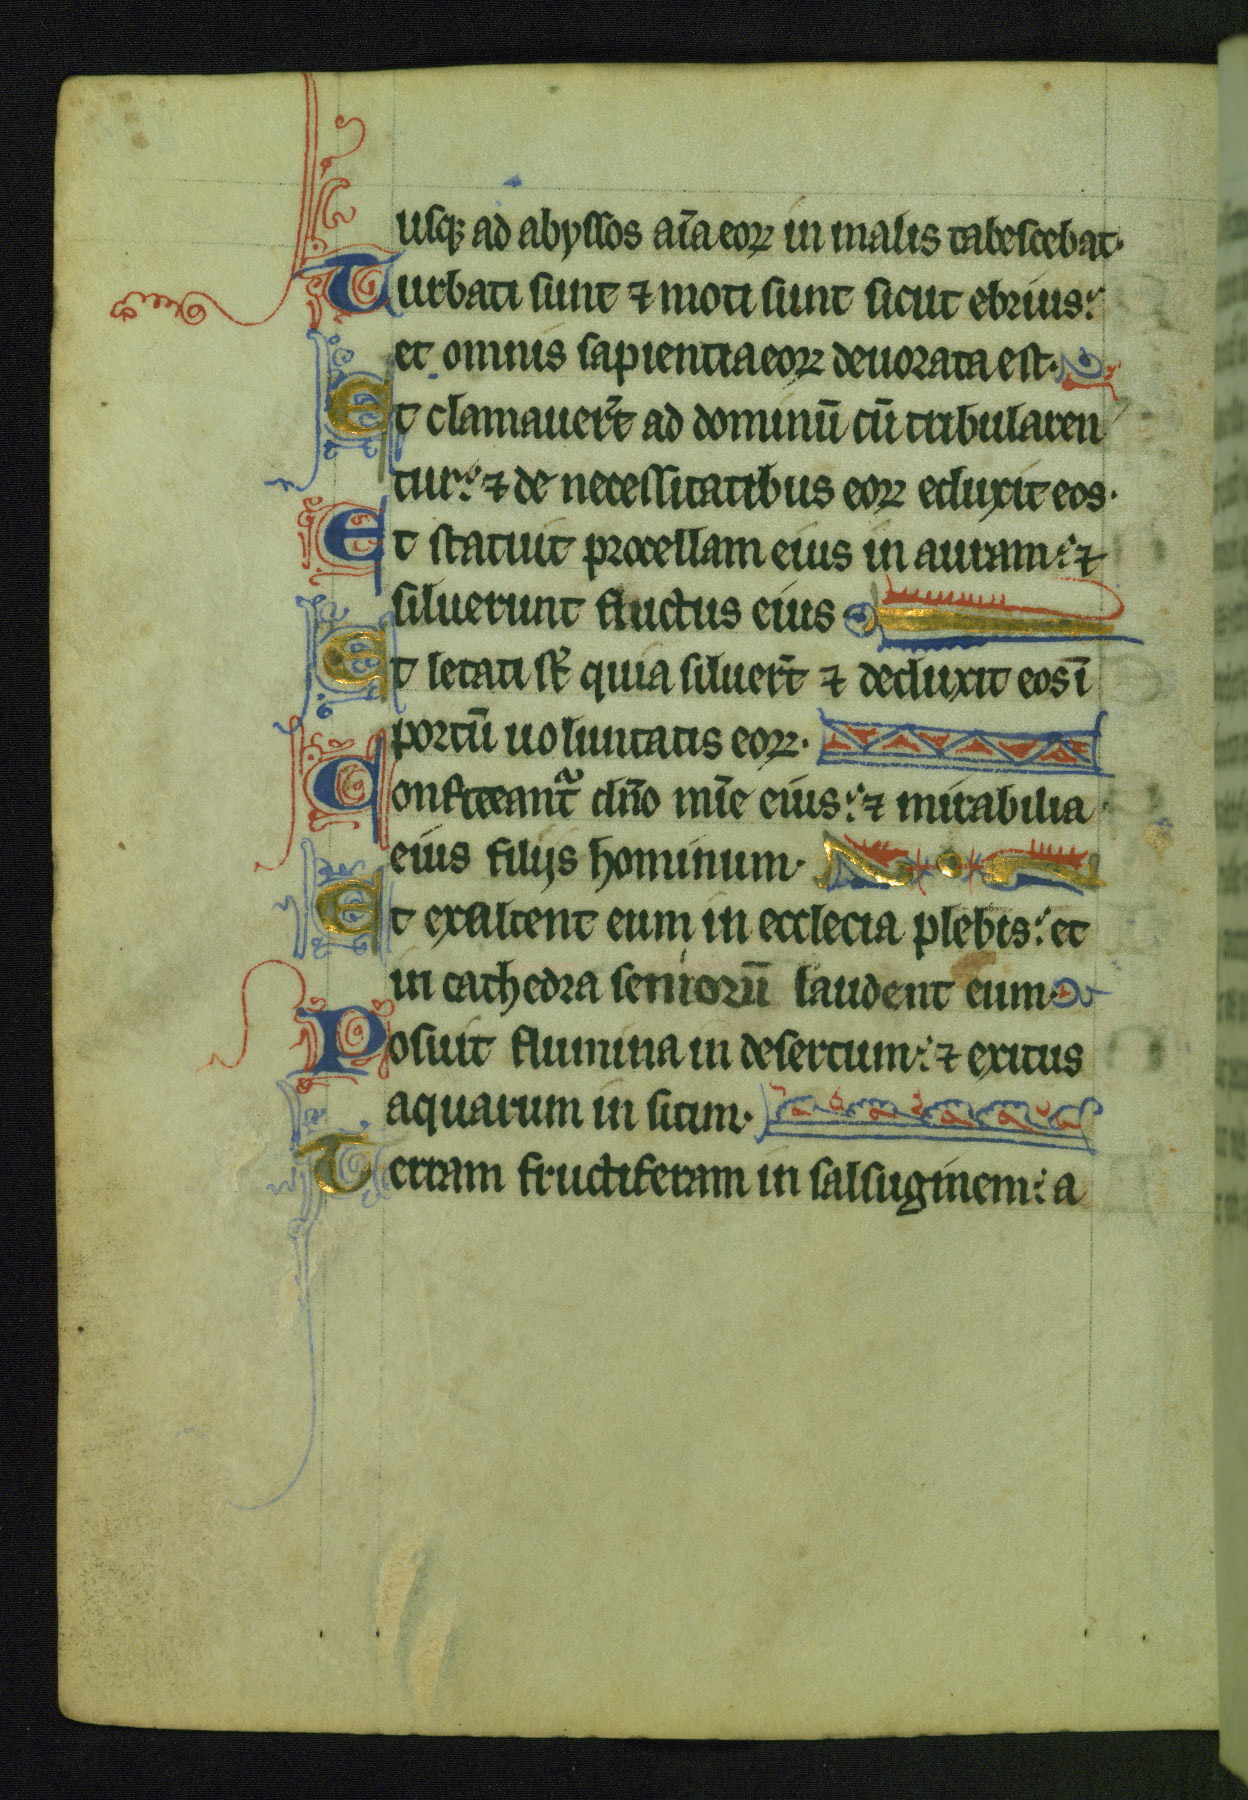 usqꝫ ad abyssos aīa eoꝝ in malis tabescebat·
Turbati sunt ⁊ moti sunt sicut ebrius:
et omnis sapientia eoꝝ deuorata est·
Et clamauer̄t ad dominū cū tribularen
tur: ⁊ de necessitatibus eoꝝ eduxit eos·
Et statuit procellam eius in auram: ⁊
siluerunt fluctus eius
Et letati st̄ quia siluer̄t ⁊ deduxit eos ī
portū uoluntatis eoꝝ·
Confiteant̃ dn̄o mīe eius: ⁊ mirabilia
eius filijs hominum·
Et exaltent eum in ecclecia plebis: et
in cathedra seniorū laudent eum·
Posuit flumina in desertum: ⁊ exitus
aquarum in sitim·
Terram fructiferam in salsuginem: a